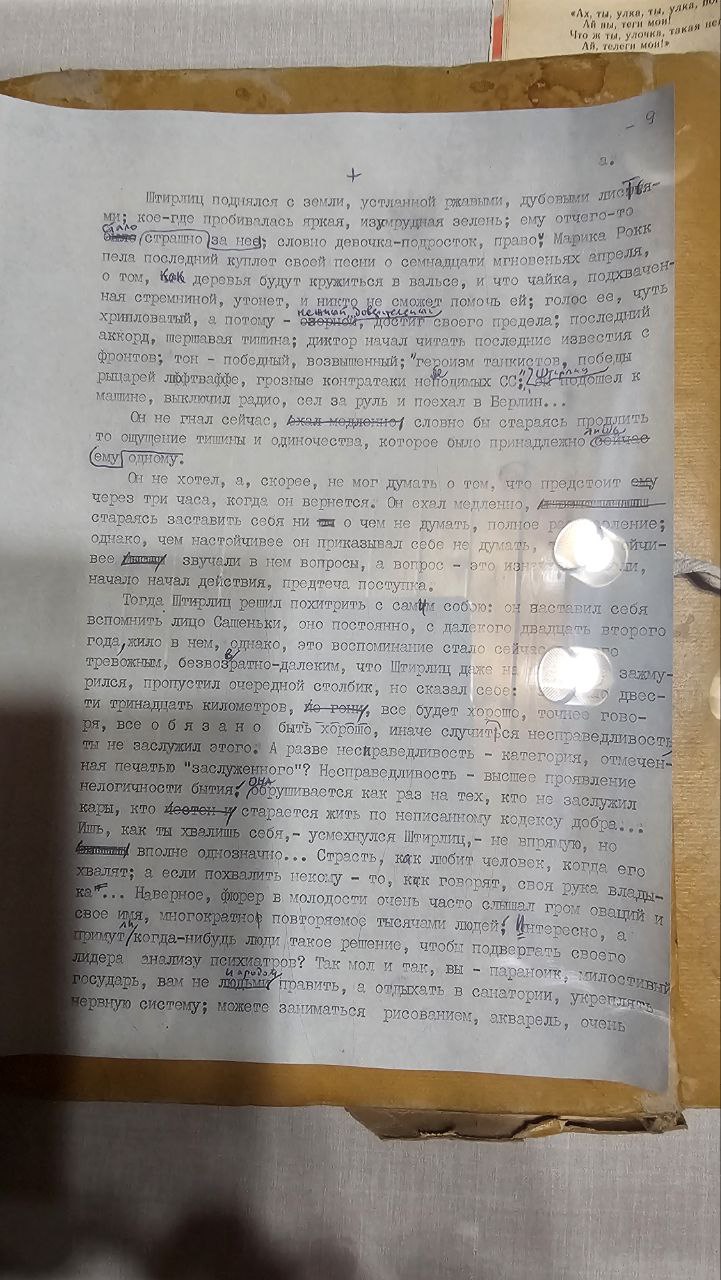 «Ах, ты, улка, ты, улка,
Ай вы, теги мои!
Что ж ты, улочка, такая
Ай, телеги мои!»
- 9
а.
+
Штирлиц поднялся с земли, устланной ржавыми, дубовыми листья-
ми; кое-где пробивалась яркая, изумрудная зелень; ему отчего-то
стало
было страшно за нее; словно девочка-подросток, право; Марика Рокк
пела последний куплет своей песни о семнадцати мгновеньях апреля,
о том, как деревья будут кружиться в вальсе, и что чайка, подхвачен-
ная стремниной, утонет, и никто не сможет помочь ей; голос ее, чуть
нежный, доверительный
хрипловатый, а потому - озорной, достиг своего предела; последний
аккорд, шершавая тишина; диктор начал читать последние известия с
фронтов; тон - победный, возвышенный; "героизм танкистов, победы
рыцарей люфтваффе, грозные контратаки непобедимых СС"; Штирлиц
он подошел к
машине, выключил радио, сел за руль и поехал в Берлин...
Он не гнал сейчас, ехал медленно, словно бы стараясь продлить
лишь
то ощущение тишины и одиночества, которое было принадлежно сейчас
ему одному.
Он не хотел, а, скорее, не мог думать о том, что предстоит ему
через три часа, когда он вернется. Он ехал медленно,
стараясь заставить себя ни о чем не думать, полное
однако, чем настойчивее он приказывал себе не думать,
вее звучали в нем вопросы, а вопрос - это
начало начал действия, предтеча поступка.
Тогда Штирлиц решил похитрить с самим собою: он заставил себя
вспомнить лицо Сашеньки, оно постоянно, с далекого двадцать второго
года, жило в нем, однако, это воспоминание стало
тревожным, безвозвратно-далеким, что Штирлиц даже на зажму-
рился, пропустил очередной столбик, но сказал себе: двес-
ти тринадцать километров, все будет хорошо, точнее гово-
ря, все о б я з а н о быть хорошо, иначе случится несправедливость
ты не заслужил этого. А разве несправедливость - категория, отмечен-
ная печатью "заслуженного"? Несправедливость - высшее проявление
нелогичности бытия; она обрушивается как раз на тех, кто не заслужил
кары, кто старается жить по неписанному кодексу добра...
Ишь, как ты хвалишь себя,- усмехнулся Штирлиц,- не впрямую, но
вполне однозначно... Страсть, как любит человек, когда его
хвалят; а если похвалить некому - то, как говорят, своя рука влады-
ка"... Наверное, фюрер в молодости очень часто слышал гром оваций и
свое имя, многократно повторяемое тысячами людей; Интересно, а
примут ли когда-нибудь люди такое решение, чтобы подвергать своего
лидера анализу психиатров? Так мол и так, вы - параноик, милостивый
народом
государь, вам не людьми править, а отдыхать в санатории, укреплять
нервную систему; можете заниматься рисованием, акварель, очень